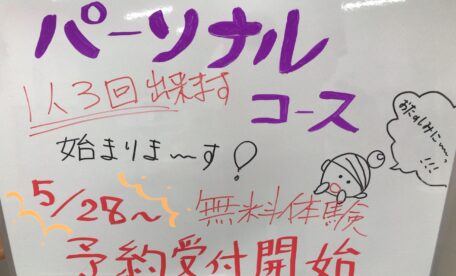 パーソナル
コース
1人3回出来ます
始まりま〜す!
おたのしみに〜っ
!!!
5/28〜
無料体験
予約受付開始